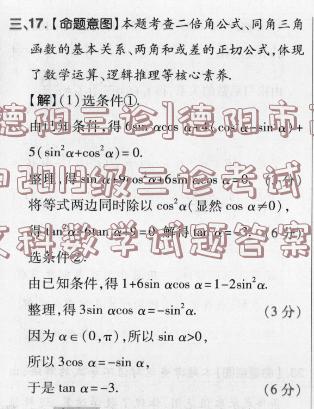 三、17.【命题意图】本题考查二倍角公式、同角三角
函数的基本关系、两角和或差的正切公式,体现
了数学运算、逻辑推理等核心素养.
【解】(1)选条件①.
由已知条件,得6sin αcos α+4(cos²α-sin²α)+
5(sin²α+cos²α)=0.
整理,得sin²α+9cos²α+6sin αcos α=0.
将等式两边同时除以 cos²α(显然 cos α≠0),
得tan²α+6tan α+9=0.解得tan α=-3. (6分)
选条件②.
由已知条件,得1+6sin αcos α=1-2sin²α.
整理,得3sin αcos α=-sin²α. (3分)
因为 α∈(0,π),所以 sin α>0,
所以3cos α=-sin α,
于是 tan α=-3. (6分)
德阳三诊]德阳市高
中2019级三诊考试
文科数学试题答案